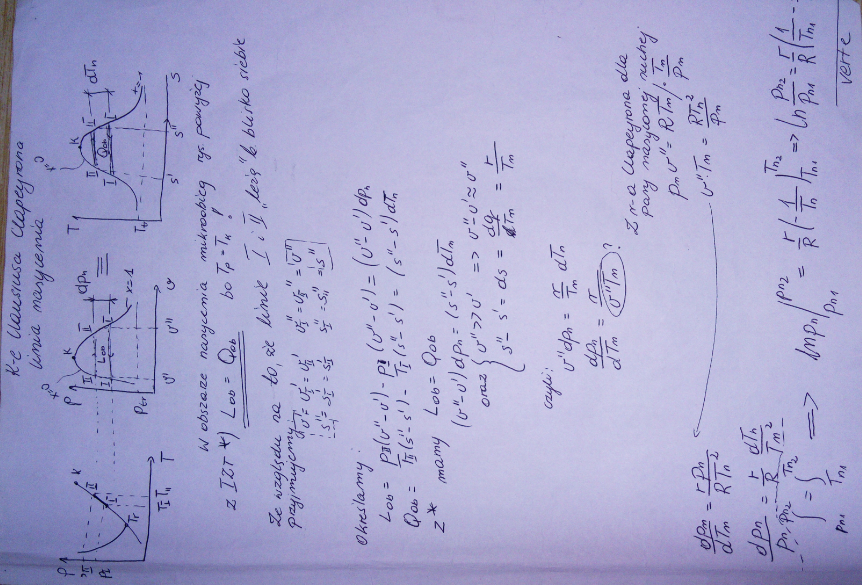 K-c Clausiusa Clapeyrona
linia nasycenia
p
p_II
p_I
Tr
k
II
I
T_I T_II
T
p
p_tr
K
II
I
L_ob
dp_n
x=1
v'
v''
v
T
T_tr
K
II
I
Q_ob
dT_n
x=1
s'
s''
s
W obszarze nasycenia mikroobieg rys. powyżej
z IZT *) L_ob = Q_ob bo T_p = T_k !
Ze względu na to, że linie I i II "leżą" b. blisko siebie
przyjmujemy
v' = v_I' = v_II' v_I'' = v_II'' = v''
s' = s_I' = s_II' s_I'' = s_II'' = s''
Określamy:
L_ob = p_II (v''-v') - p_I (v''-v') = (v''-v') dp_n
Q_ob = T_II (s''-s') - T_I (s''-s') = (s''-s') dT_n
z * mamy L_ob = Q_ob
(v''-v') dp_n = (s''-s') dT_n
oraz { v'' >> v' => v''-v' ≈ v''
s''-s' = ds = dq/T_n = r/T_n
czyli:
v'' dp_n = r/T_n dT_n
dp_n/dT_n = r/(v'' T_n) ?
Z r-a Clapeyrona dla
pary nasyconej suchej
p_n v'' = R T_n / · T_n/p_n
v'' T_n = RT_n²/p_n
dp_n/dT_n = r p_n/RT_n²
dp_n/p_n = r/R dT_n/T_n²
∫_{p_n1}^{p_n2} = ∫_{T_n1}^{T_n2} => ln p_n |_{p_n1}^{p_n2} = r/R (-1/T_n)_{T_n1}^{T_n2} => ln p_n2/p_n1 = r/R (1/T_n1 -
verte